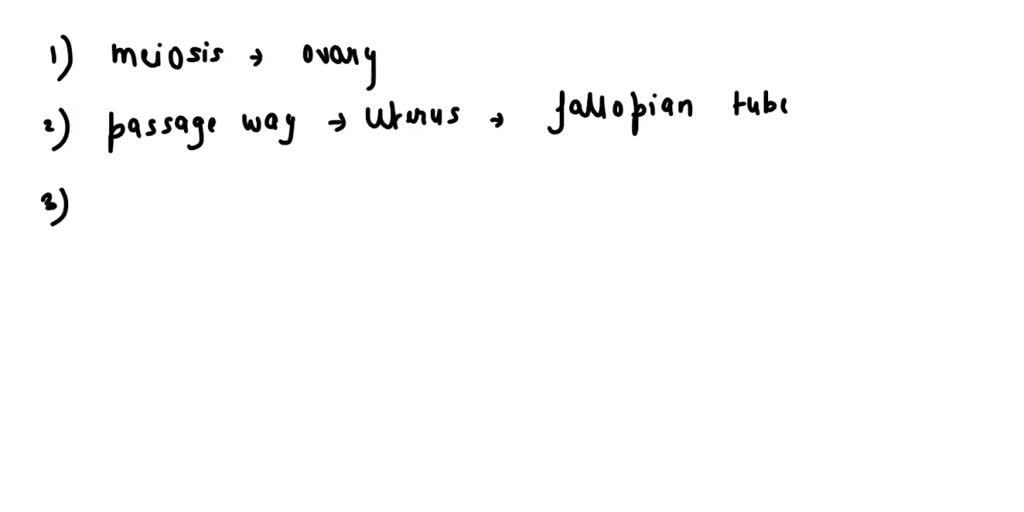 1) meiosis → ovary
2) passage way → Uterus → fallopian tube
3)